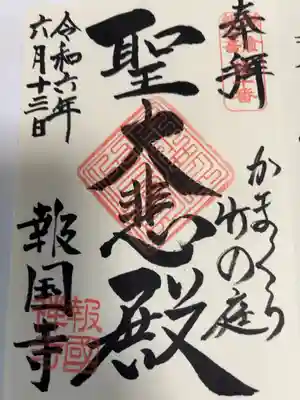 奉拝
かまくら
竹の庭
聖大悲殿
令和六年
六月十三日
報国寺
報國
禅寺